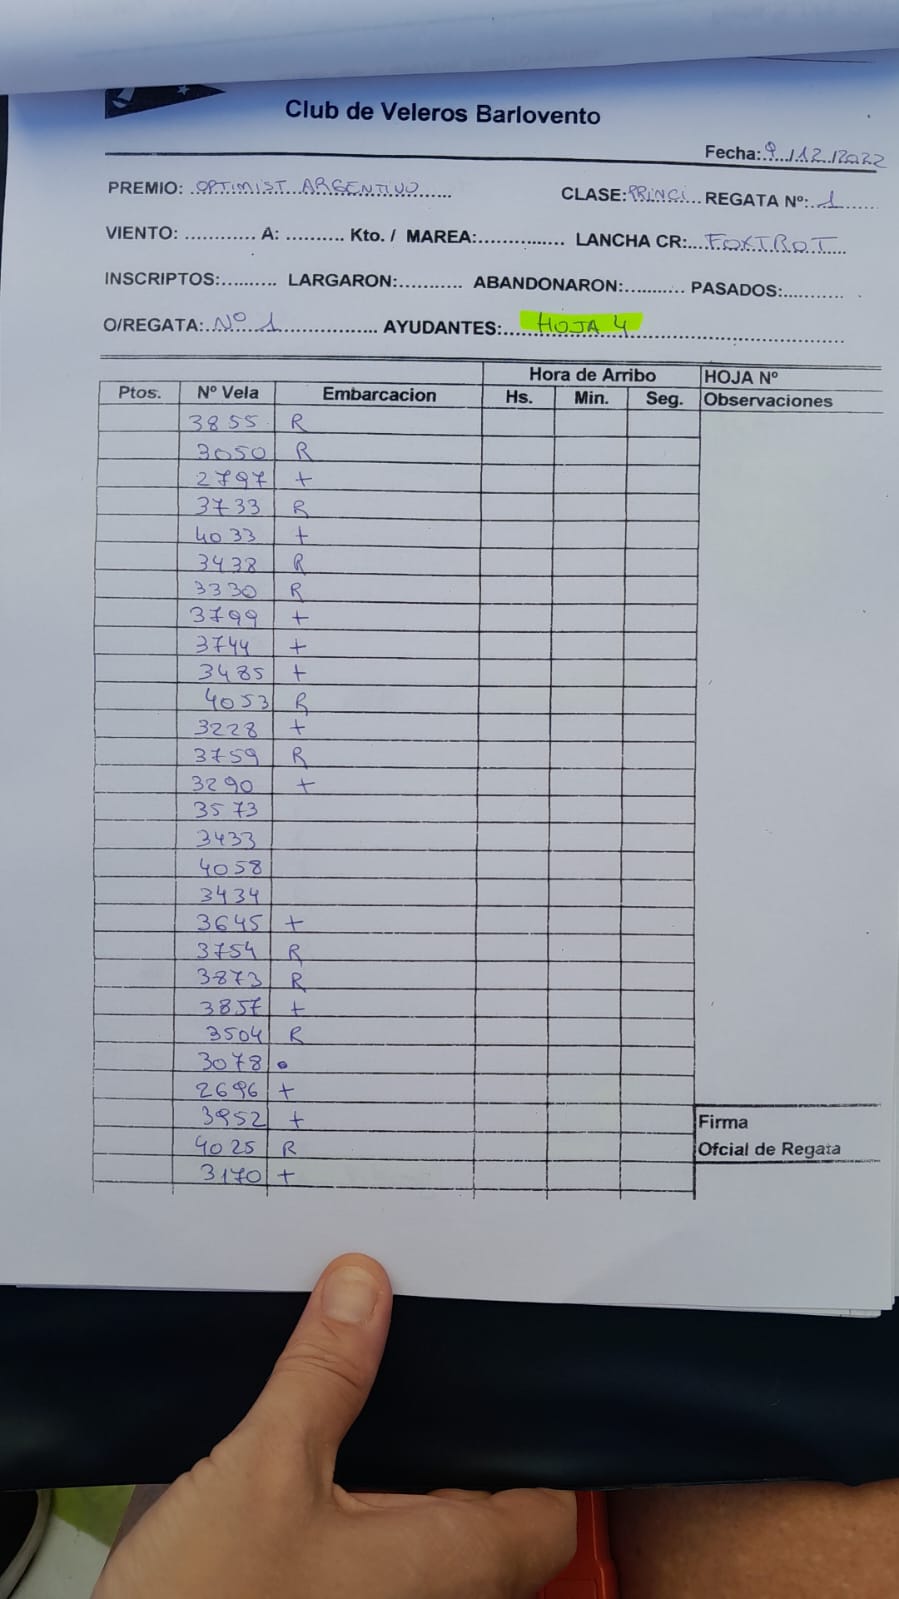 Club de Veleros Barlovento
Fecha: 9/12/2022
PREMIO: OPTIMIST ARGENTINO CLASE: PRINCI REGATA Nº: 1
VIENTO: ............ A: .......... Kto. / MAREA:............... LANCHA CR: FOXTROT
INSCRIPTOS:.......... LARGARON:........... ABANDONARON:........... PASADOS:...........
O/REGATA: Nº 1 AYUDANTES: HOJA 4
Hora de Arribo HOJA Nº
Ptos. Nº Vela Embarcacion Hs. Min. Seg. Observaciones
3855 R
3050 R
2797 +
3733 R
4033 +
3438 R
3330 R
3799 +
3744 +
3485 +
4053 R
3228 +
3759 R
3290 +
3573
3433
4058
3434
3645 +
3754 R
3873 R
3857 +
3504 R
3078 •
2696 +
3952 +
Firma
4025 R
Ofcial de Regata
3170 +